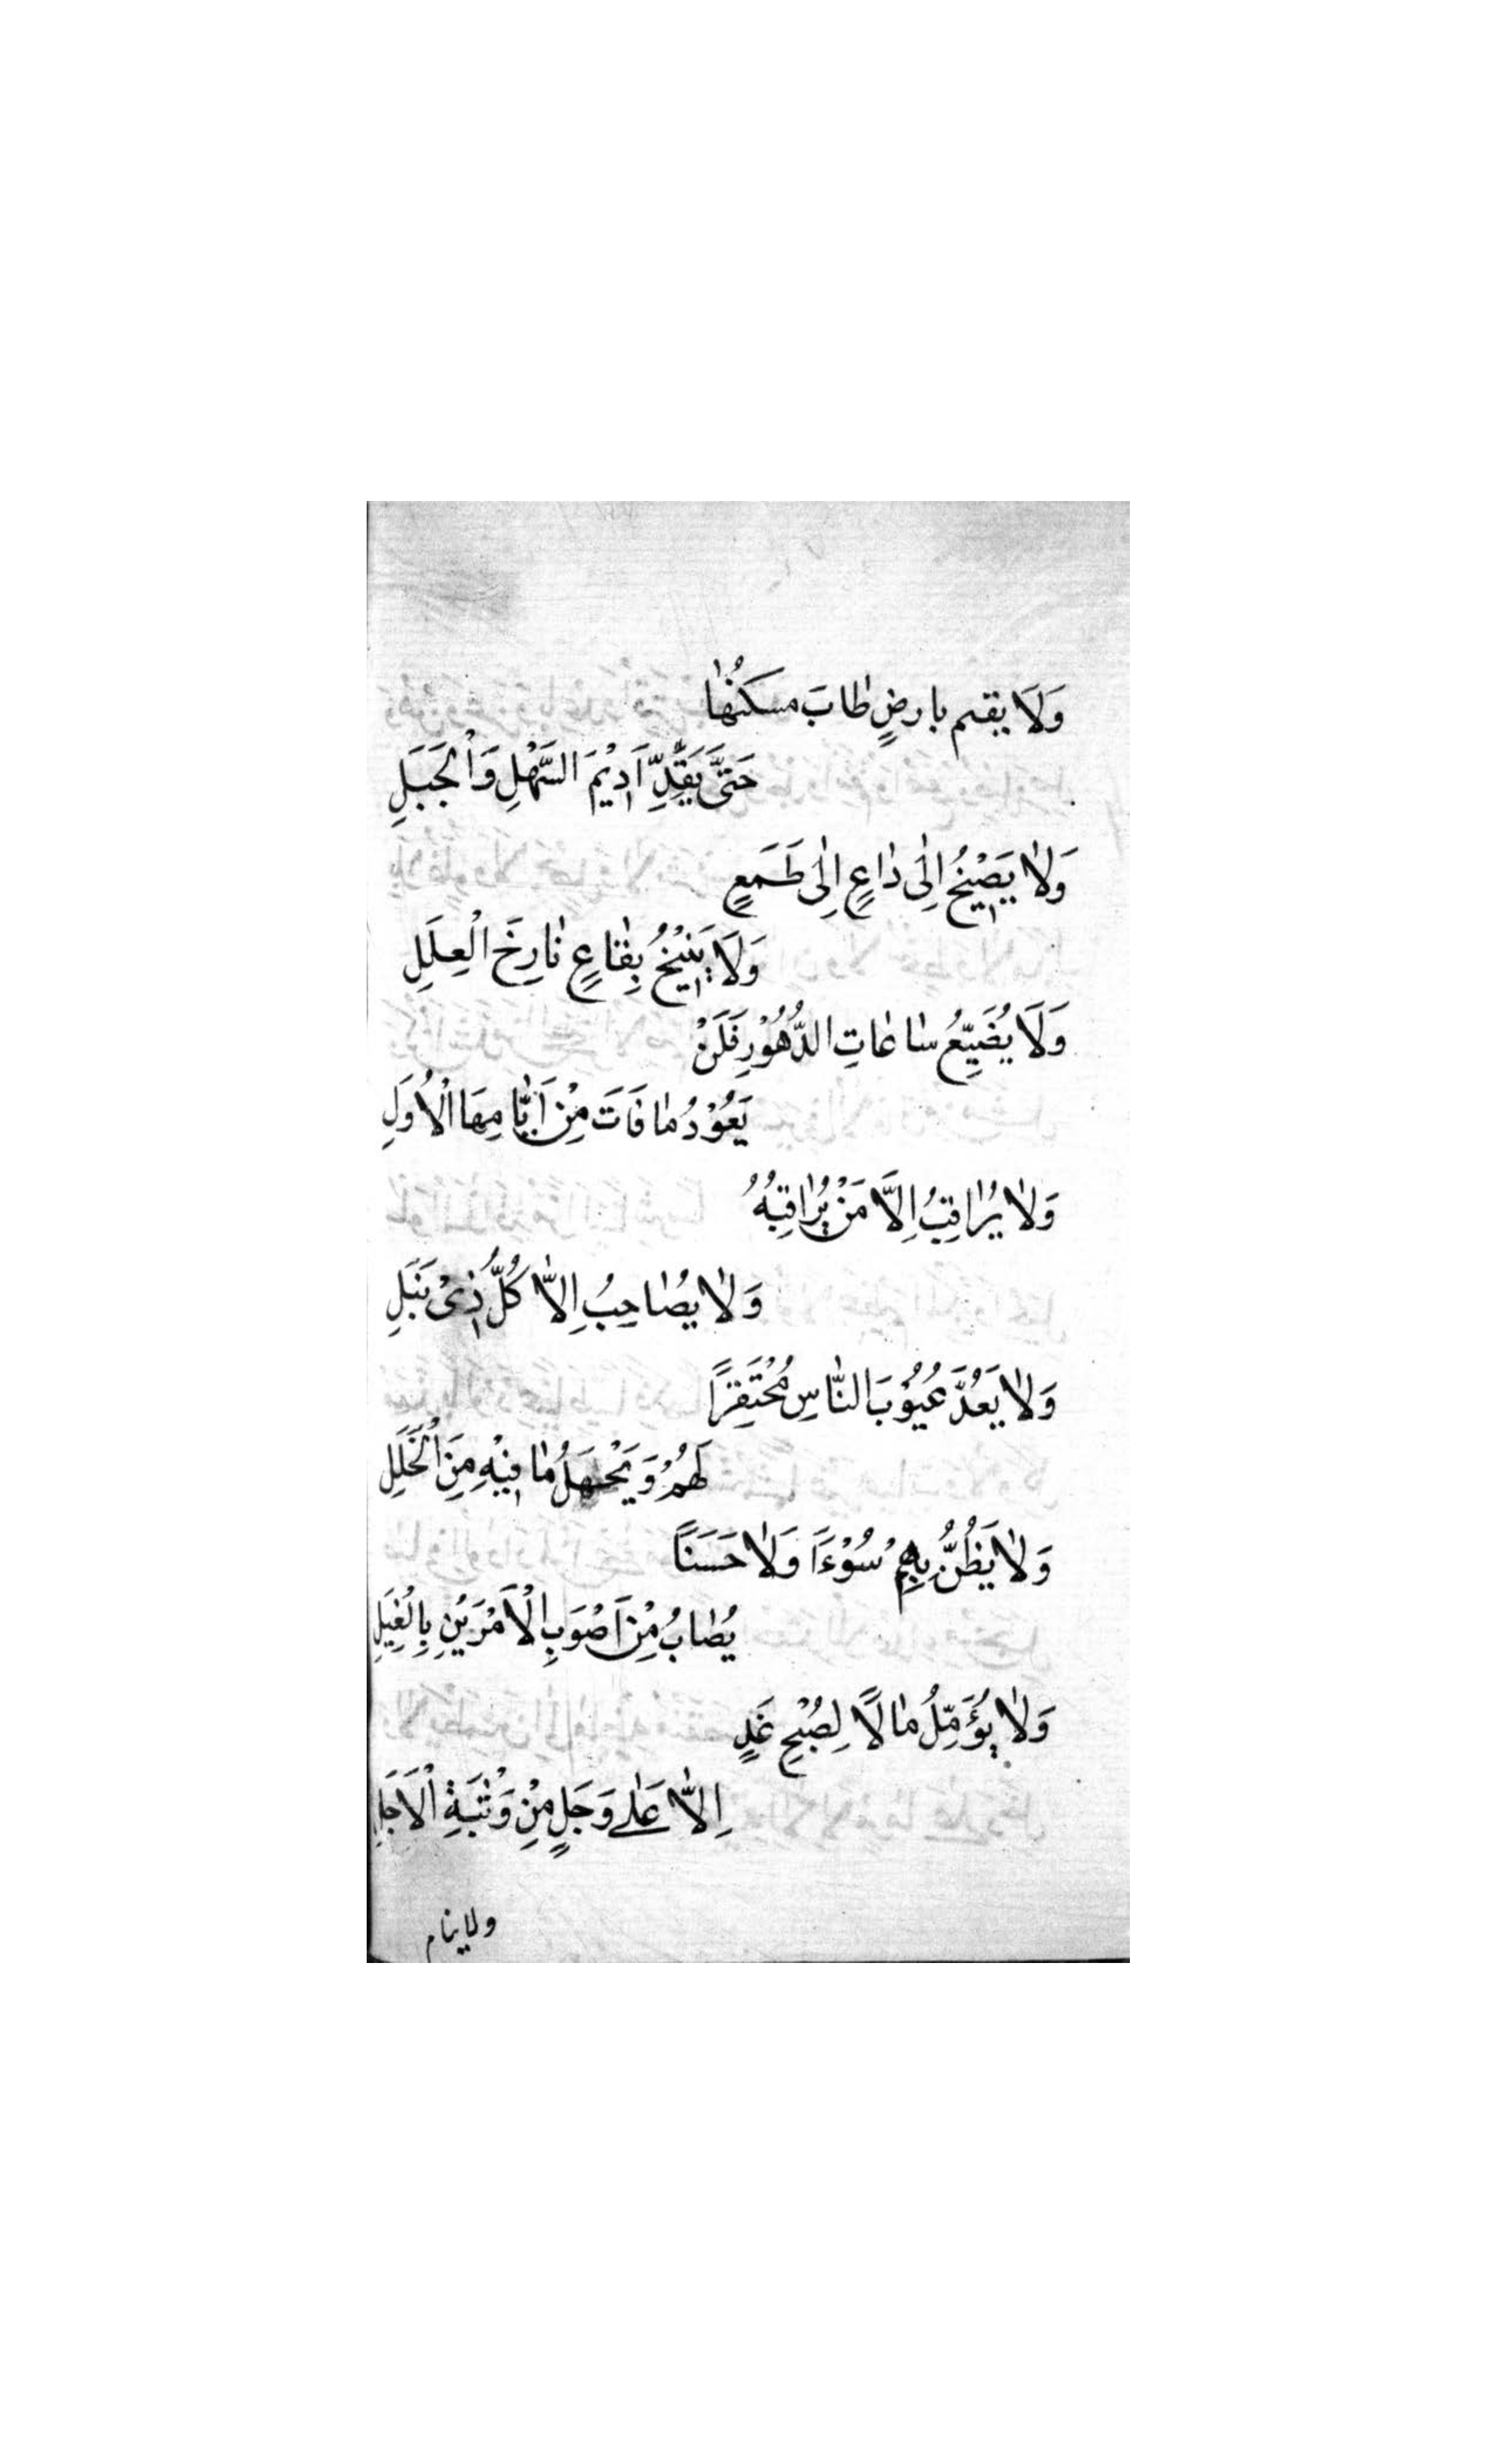 وَلَا يقم بارضٍ طابَ مسكنُها
حَتَّى يَقُدَّ اَدِيْمَ السَّهْلِ وَالْجَبَلِ
وَلا يَصِيْخُ اِلٰى داعٍ اِلٰى طَمَعٍ
وَلَا يُنِيْخُ بِقاعٍ نازِخَ الْعِلَلِ
وَلَا يُضَيِّعُ ساعاتِ الدُّهُوْرِ فَلَنْ
يَعُوْدُ مافَاتَ مِنْ اَيَّامِهَا الْاُوَلِ
وَلا يُراقِبُ اِلَّا مَنْ يُراقِبُهُ
وَلا يُصاحِبُ اِلَّا كُلَّ ذِىْ نَبَلِ
وَلا يَعُدَّ عُيُوْبَ النَّاسِ مُحْتَقِرًا
لَهُمْ وَيَجْهَلُ ما فِيْهِ مِنَ الْخَلَلِ
وَلا يَظُنُّ بِهِمْ سُوْءًا وَلا حَسَنًا
يُصابُ مِنْ اَصْوَبِ الْاَمْرَيْنِ بِالْغِيَلِ
وَلا يُؤَمِّلُ مالًا لِصُبْحِ غَدٍ
اِلَّا عَلٰى وَجَلٍ مِنْ وَثْبَةِ الْاَجَلِ
ولاينام